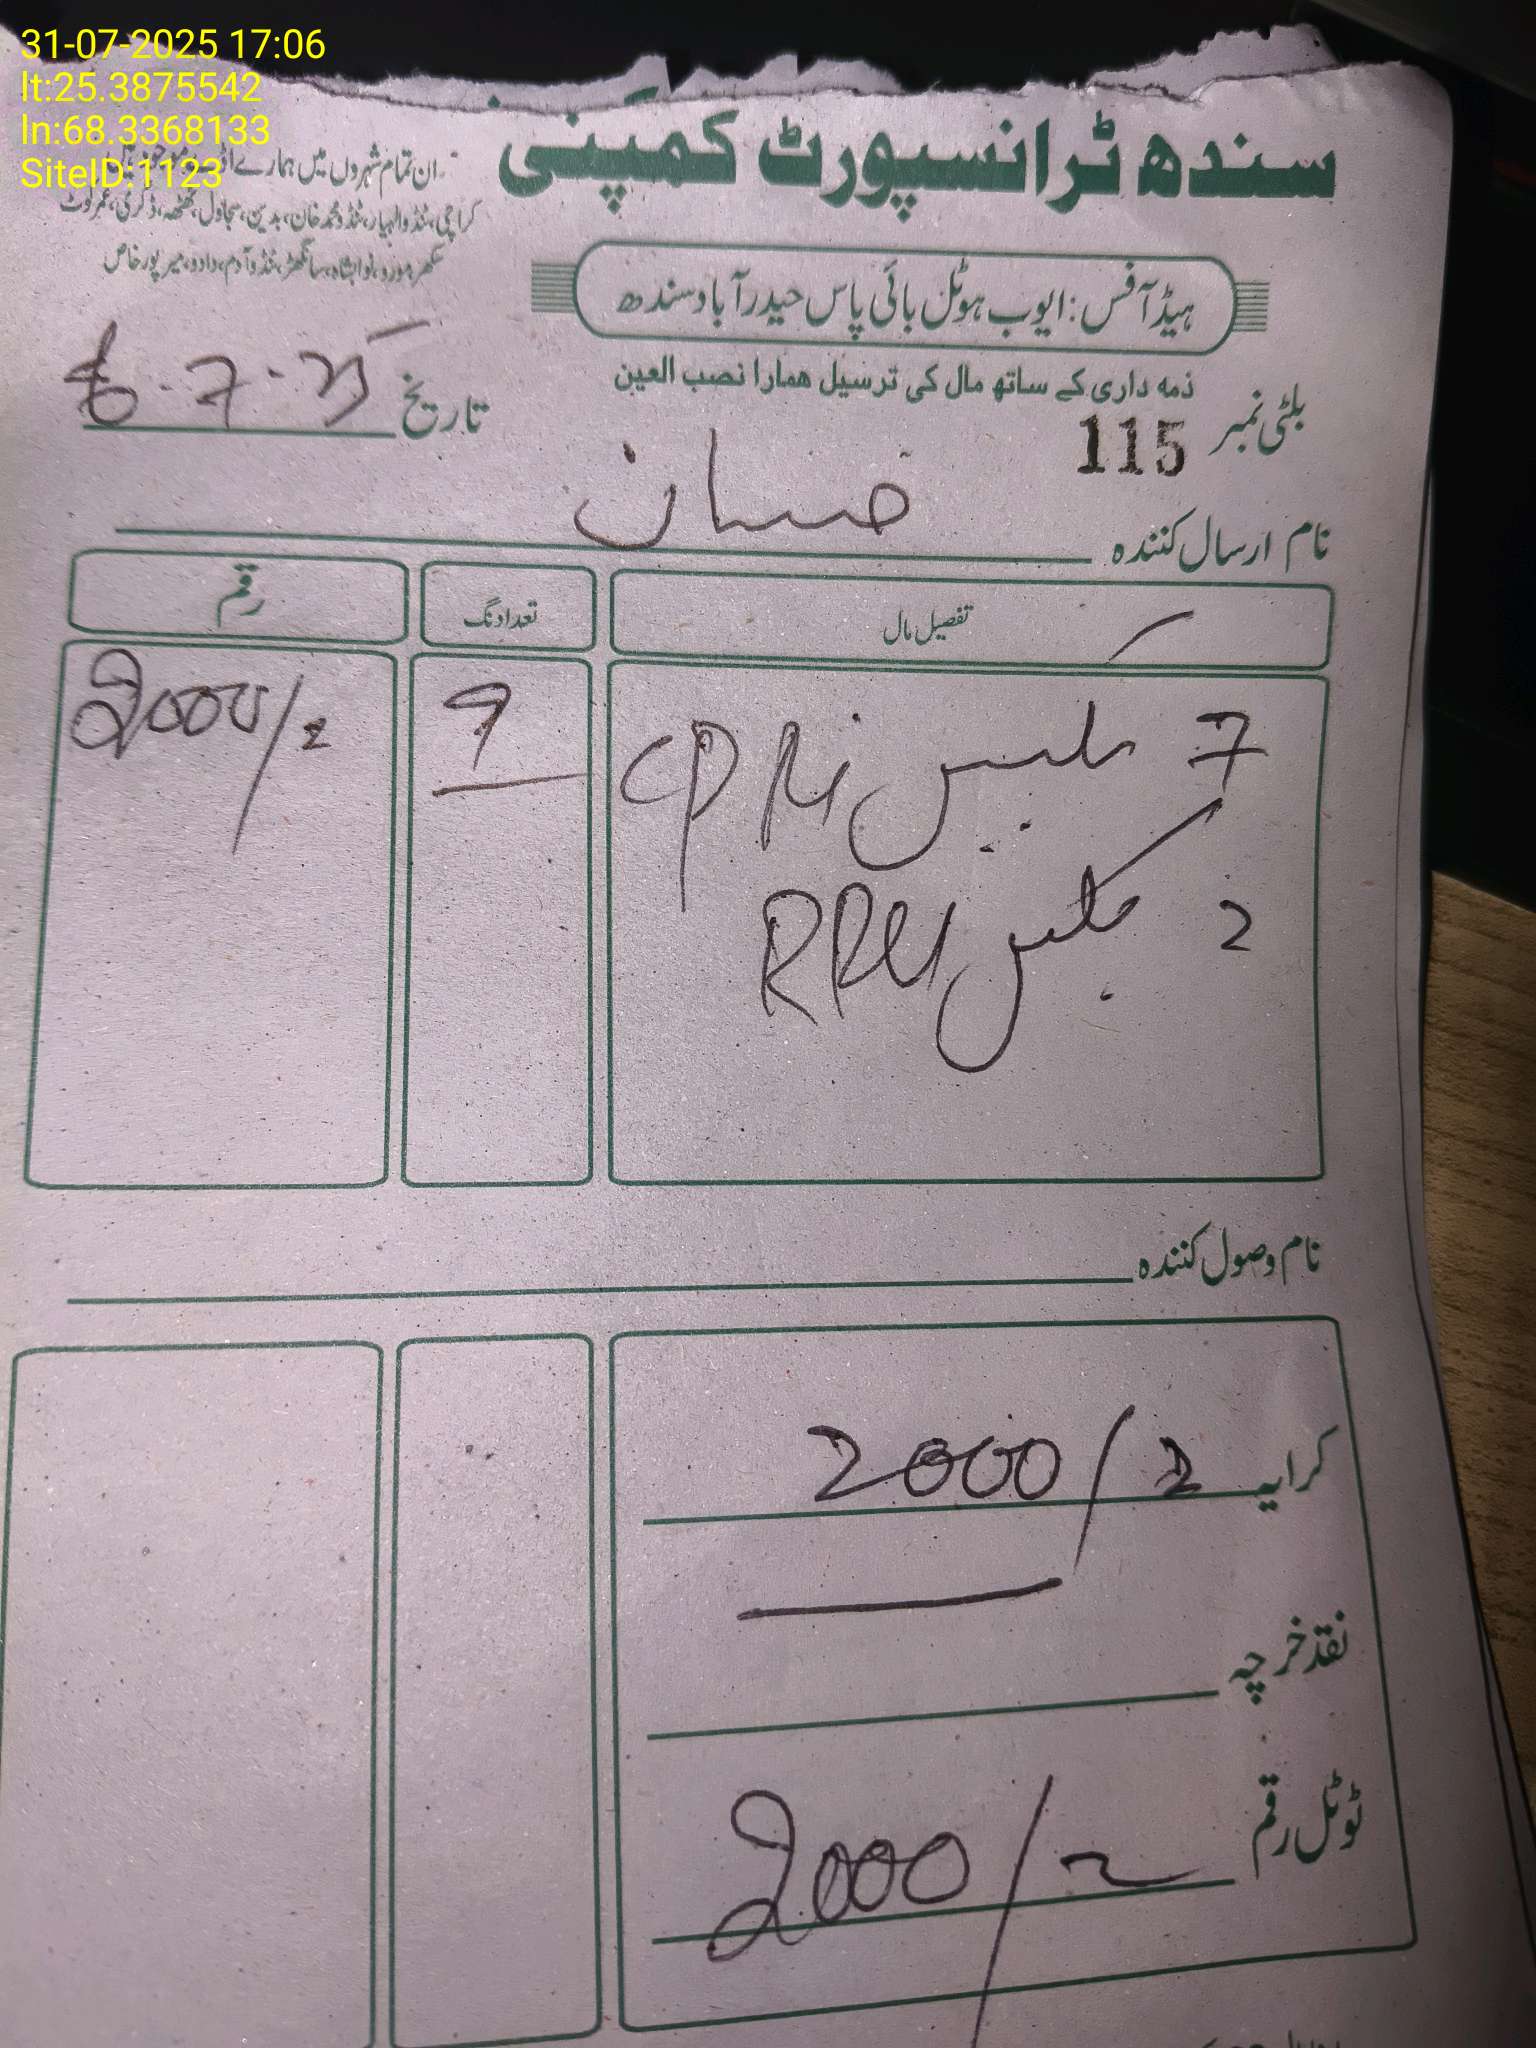 31-07-2025 17:06
lt:25.3875542
ln:68.3368133
SiteID:1123
سندھ ٹرانسپورٹ کمپنی
ان تمام شہروں میں ہمارے
کراچی، ٹنڈوالہیار، ٹنڈو محمد خان، بدین، سجاول، ٹھٹھہ، ڈگری، عمرکوٹ
سکھر، مورو، نوابشاہ، سانگھڑ، ٹنڈوآدم، دادو، میرپورخاص
ہیڈ آفس: ایوب ہوٹل بائی پاس حیدرآباد سندھ
ذمہ داری کے ساتھ مال کی ترسیل ھمارا نصب العین
بلٹی نمبر 115
تاریخ
نام ارسال کنندہ
تفصیل مال
تعداد نگ
رقم
7 CPRI
9
2000/=
2 بکس RRU
نام وصول کنندہ
کرایہ 2000/=
نقد خرچہ
ٹوٹل رقم 2000/=